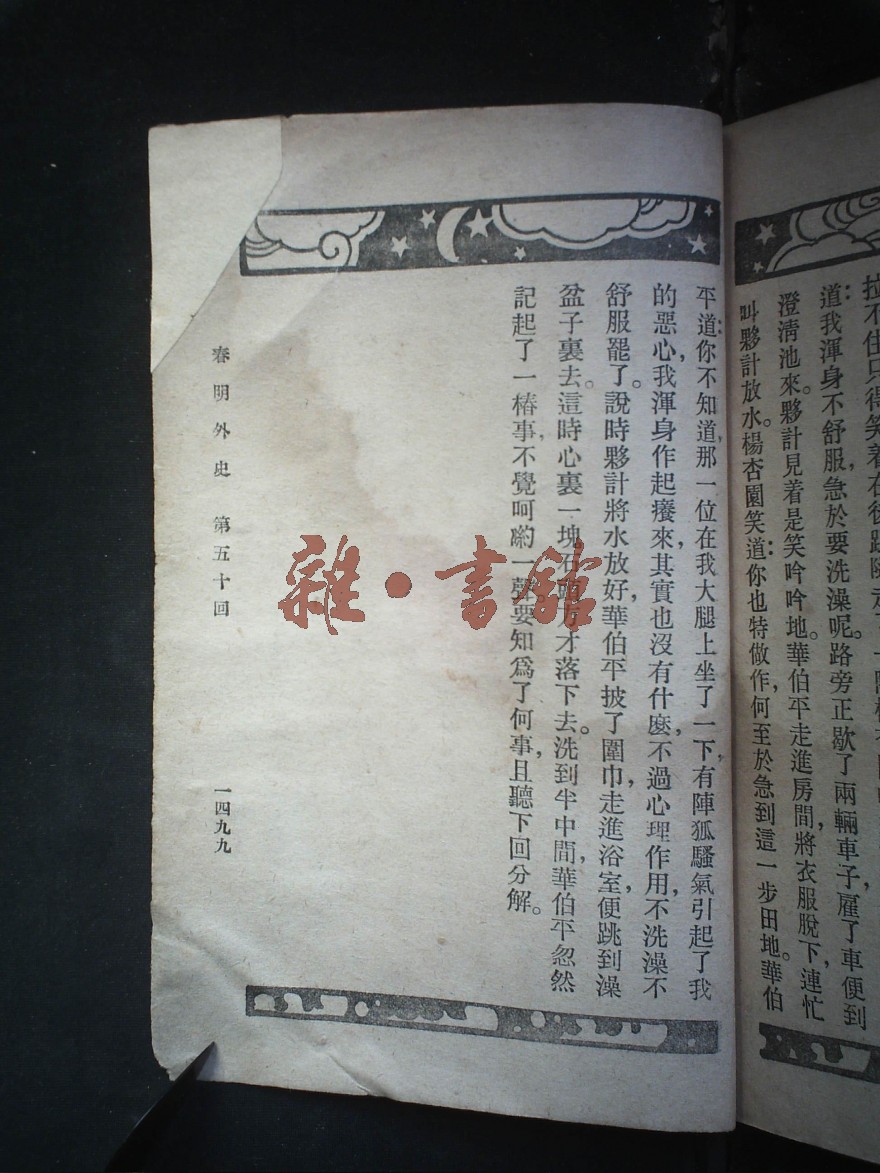 拉不住只得笑着在後跟隨走
道：我渾身不舒服，急於要洗澡呢。路旁正歇了兩輛車子，雇了車便到
澄清池來。夥計見着是笑吟吟地。華伯平走進房間，將衣服脫下，連忙
叫夥計放水。楊杏園笑道：你也特做作，何至於急到這一步田地。華伯
平道：你不知道，那一位在我大腿上坐了一下，有陣狐騷氣引起了我
的惡心，我渾身作起癢來，其實也沒有什麽，不過心理作用，不洗澡不
舒服罷了。說時夥計將水放好，華伯平披了圍巾走進浴室，便跳到澡
盆子裏去。這時心裏一塊石頭方才落下去。洗到半中間，華伯平忽然
記起了一樁事，不覺呵喲一聲。要知爲了何事，且聽下回分解。
春明外史 第五十回 一四九九
雜·書館